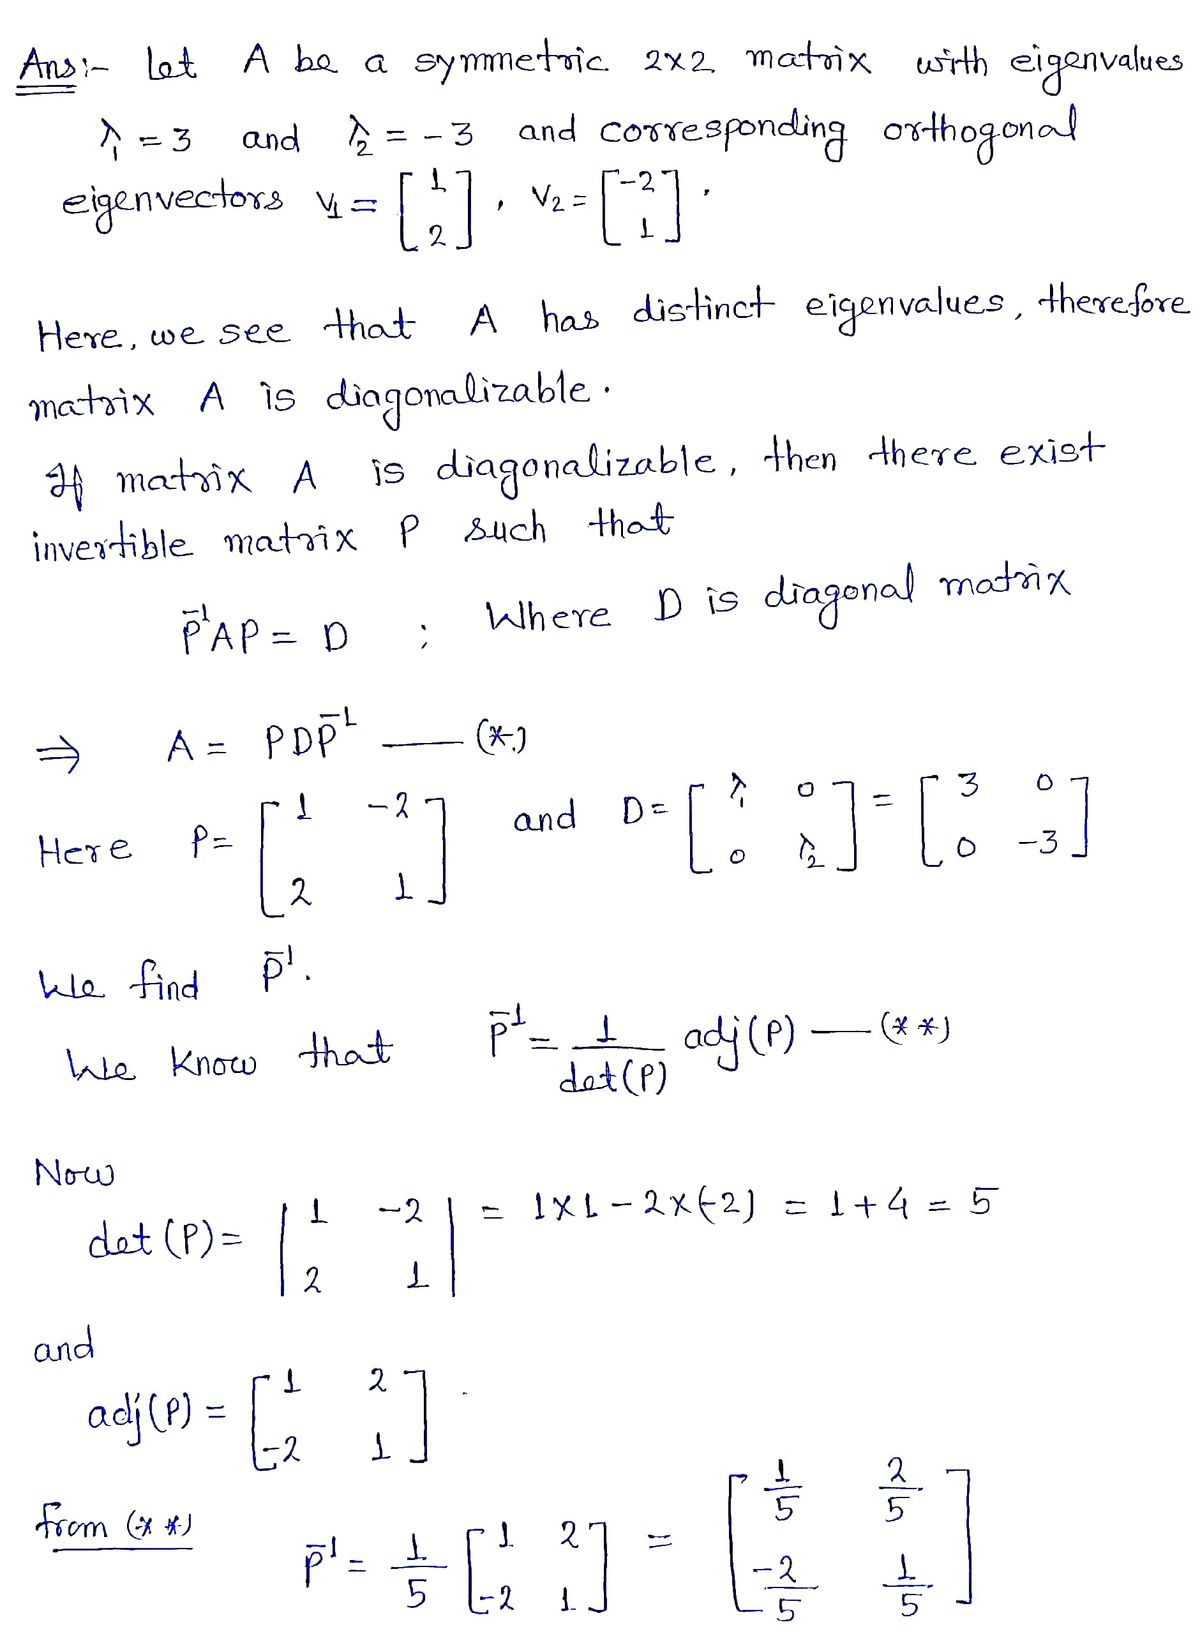 Ans:- Let A be a symmetric 2x2 matrix with eigenvalues
λ₁ = 3 and λ₂ = -3 and corresponding orthogonal
eigenvectors v₁ = [1; 2], v₂ = [-2; 1].
Here, we see that A has distinct eigenvalues, therefore
matrix A is diagonalizable.
If matrix A is diagonalizable, then there exist
invertible matrix P such that
P⁻¹AP = D ; Where D is diagonal matrix
⇒ A = PDP⁻¹ — (*)
Here P = [1 -2; 2 1] and D = [λ₁ 0; 0 λ₂] = [3 0; 0 -3]
We find P⁻¹.
We know that P⁻¹ = 1/det(P) adj(P) — (**)
Now
det(P) = |1 -2; 2 1| = 1x1 - 2x(-2) = 1+4 = 5
and
adj(P) = [1 2; -2 1].
from (**)
P⁻¹ = 1/5 [1 2; -2 1] = [1/5 2/5; -2/5 1/5]